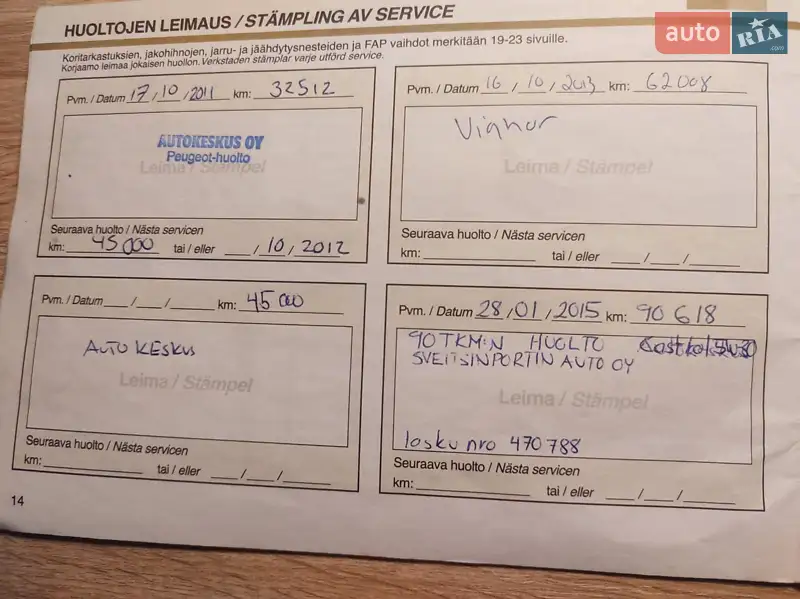 HUOLTOJEN LEIMAUS / STÄMPLING AV SERVICE
Koritarkastuksien, jakohihnojen, jarru- ja jäähdytysnesteiden ja FAP vaihdot merkitään 19-23 sivuille.
Korjaamo leimaa jokaisen huollon. Verkstaden stämplar varje utförd service.
Pvm. / Datum 17 / 10 / 2011 km: 32512
AUTOKESKUS OY
Peugeot-huolto
Leima / Stämpel
Seuraava huolto / Nästa servicen
km: 45 000 tai / eller __ / 10 / 2012
Pvm. / Datum 16 / 10 / 2013 km: 62008
Leima / Stämpel
Seuraava huolto / Nästa servicen
km: tai / eller __ / __ / __
Pvm. / Datum __ / __ / __ km: 45 000
AUTO KESKUS
Leima / Stämpel
Seuraava huolto / Nästa servicen
km: tai / eller __ / __ / __
Pvm. / Datum 28 / 01 / 2015 km: 90 618
90 TKM:N HUOLTO
SVEITSINPORTIN AUTO OY
Leima / Stämpel
lasku nro 470788
Seuraava huolto / Nästa servicen
km: tai / eller __ / __ / __
14
auto RIA .com